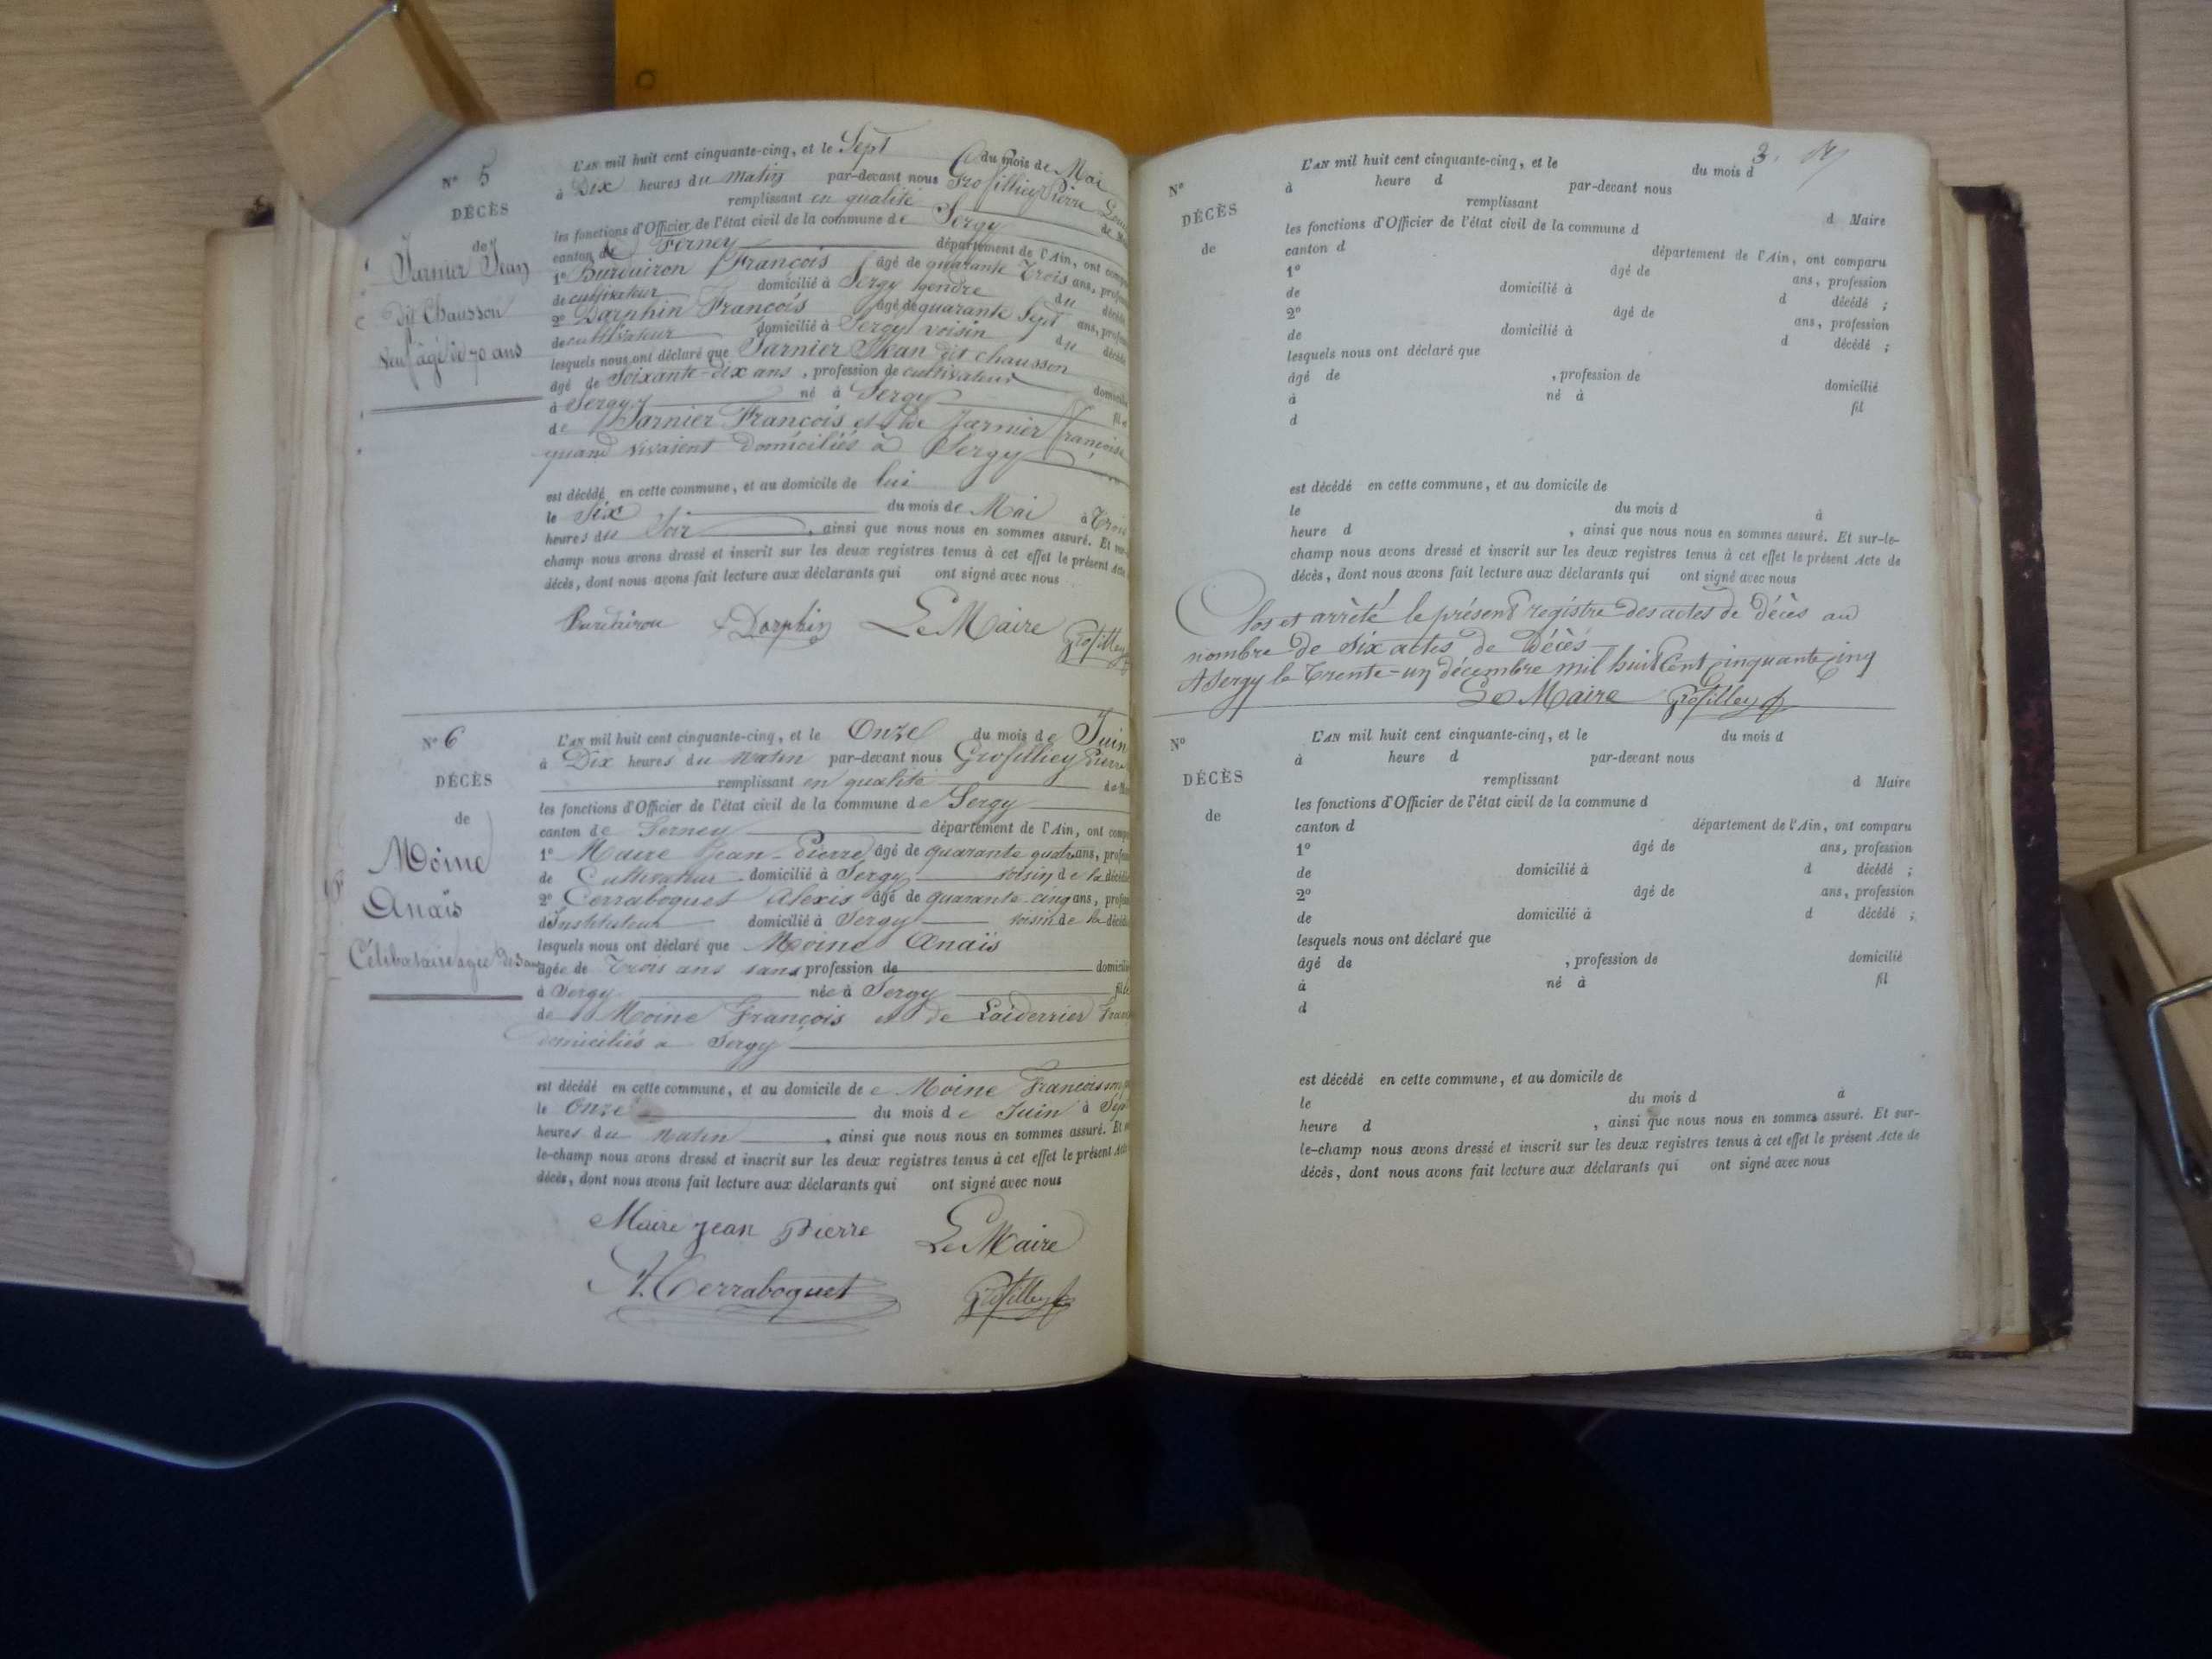 N° 5
DÉCÈS
de
Jarnier Jean
dit Chausson
veuf âgé de 70 ans
L'AN mil huit cent cinquante-cinq, et le Sept du mois de Mai
à Dix heures du matin par-devant nous Grosfilley Pierre
remplissant en qualité
les fonctions d'Officier de l'état civil de la commune de Sergy
canton de Ferney département de l'Ain, ont
1° Burdairon François âgé de quarante trois ans,
de cultivateur domicilié à Sergy gendre du
2° Darphin François âgé de quarante Sept ans,
de cultivateur domicilié à Sergy voisin du
lesquels nous ont déclaré que Jarnier Jean dit chausson
âgé de Soixante-dix ans, profession de cultivateur
à Sergy né à Sergy
de Jarnier François et de Jarnier françoise
quand vivaient domiciliés à Sergy
est décédé en cette commune, et au domicile de lui
le Six du mois de Mai à Trois
heures du Soir, ainsi que nous nous en sommes assuré. Et
champ nous avons dressé et inscrit sur les deux registres tenus à cet effet le présent Acte
décès, dont nous avons fait lecture aux déclarants qui ont signé avec nous
Burdairon f Darphin Le Maire
Grosfilley
N° 6
DÉCÈS
de
Moine
Anaïs
Célibataire agée de 3 ans
L'AN mil huit cent cinquante-cinq, et le Onze du mois de Juin
à Dix heures du matin par-devant nous Grosfilley Pierre
remplissant en qualité
les fonctions d'Officier de l'état civil de la commune de Sergy
canton de Ferney département de l'Ain, ont
1° Maire Jean-Pierre âgé de quarante quatre ans,
de Cultivateur domicilié à Sergy voisin de la
2° Cerraboquet Alexis âgé de quarante-cinq ans,
d'Instituteur domicilié à Sergy voisin de la
lesquels nous ont déclaré que Moine Anaïs
âgée de Trois ans sans profession de
à Sergy née à Sergy
de Moine François et de Laiderrier
domiciliés à Sergy
est décédé en cette commune, et au domicile de Moine François
le Onze du mois de Juin à Sept
heures du matin, ainsi que nous nous en sommes assuré. Et
le-champ nous avons dressé et inscrit sur les deux registres tenus à cet effet le présent Acte
décès, dont nous avons fait lecture aux déclarants qui ont signé avec nous
Maire Jean Pierre Le Maire
A. Cerraboquet Grosfilley
3.
N°
DÉCÈS
de
L'AN mil huit cent cinquante-cinq, et le du mois d
à heure d par-devant nous
remplissant d Maire
les fonctions d'Officier de l'état civil de la commune d
canton d département de l'Ain, ont comparu
1° âgé de ans, profession
de domicilié à d décédé ;
2° âgé de ans, profession
de domicilié à d décédé ;
lesquels nous ont déclaré que
âgé de , profession de domicilié
à né à fil
d
est décédé en cette commune, et au domicile de
le du mois d à
heure d , ainsi que nous nous en sommes assuré. Et sur-le-
champ nous avons dressé et inscrit sur les deux registres tenus à cet effet le présent Acte de
décès, dont nous avons fait lecture aux déclarants qui ont signé avec nous
Clos et arrêté le présent registre des actes de décès au
nombre de six actes de Décès
A Sergy le Trente-un décembre mil huit Cent cinquante cinq
Le Maire Grosfilley
N°
DÉCÈS
de
L'AN mil huit cent cinquante-cinq, et le du mois d
à heure d par-devant nous
remplissant d Maire
les fonctions d'Officier de l'état civil de la commune d
canton d département de l'Ain, ont comparu
1° âgé de ans, profession
de domicilié à d décédé ;
2° âgé de ans, profession
de domicilié à d décédé ;
lesquels nous ont déclaré que
âgé de , profession de domicilié
à né à fil
d
est décédé en cette commune, et au domicile de
le du mois d à
heure d , ainsi que nous nous en sommes assuré. Et sur-
le-champ nous avons dressé et inscrit sur les deux registres tenus à cet effet le présent Acte de
décès, dont nous avons fait lecture aux déclarants qui ont signé avec nous